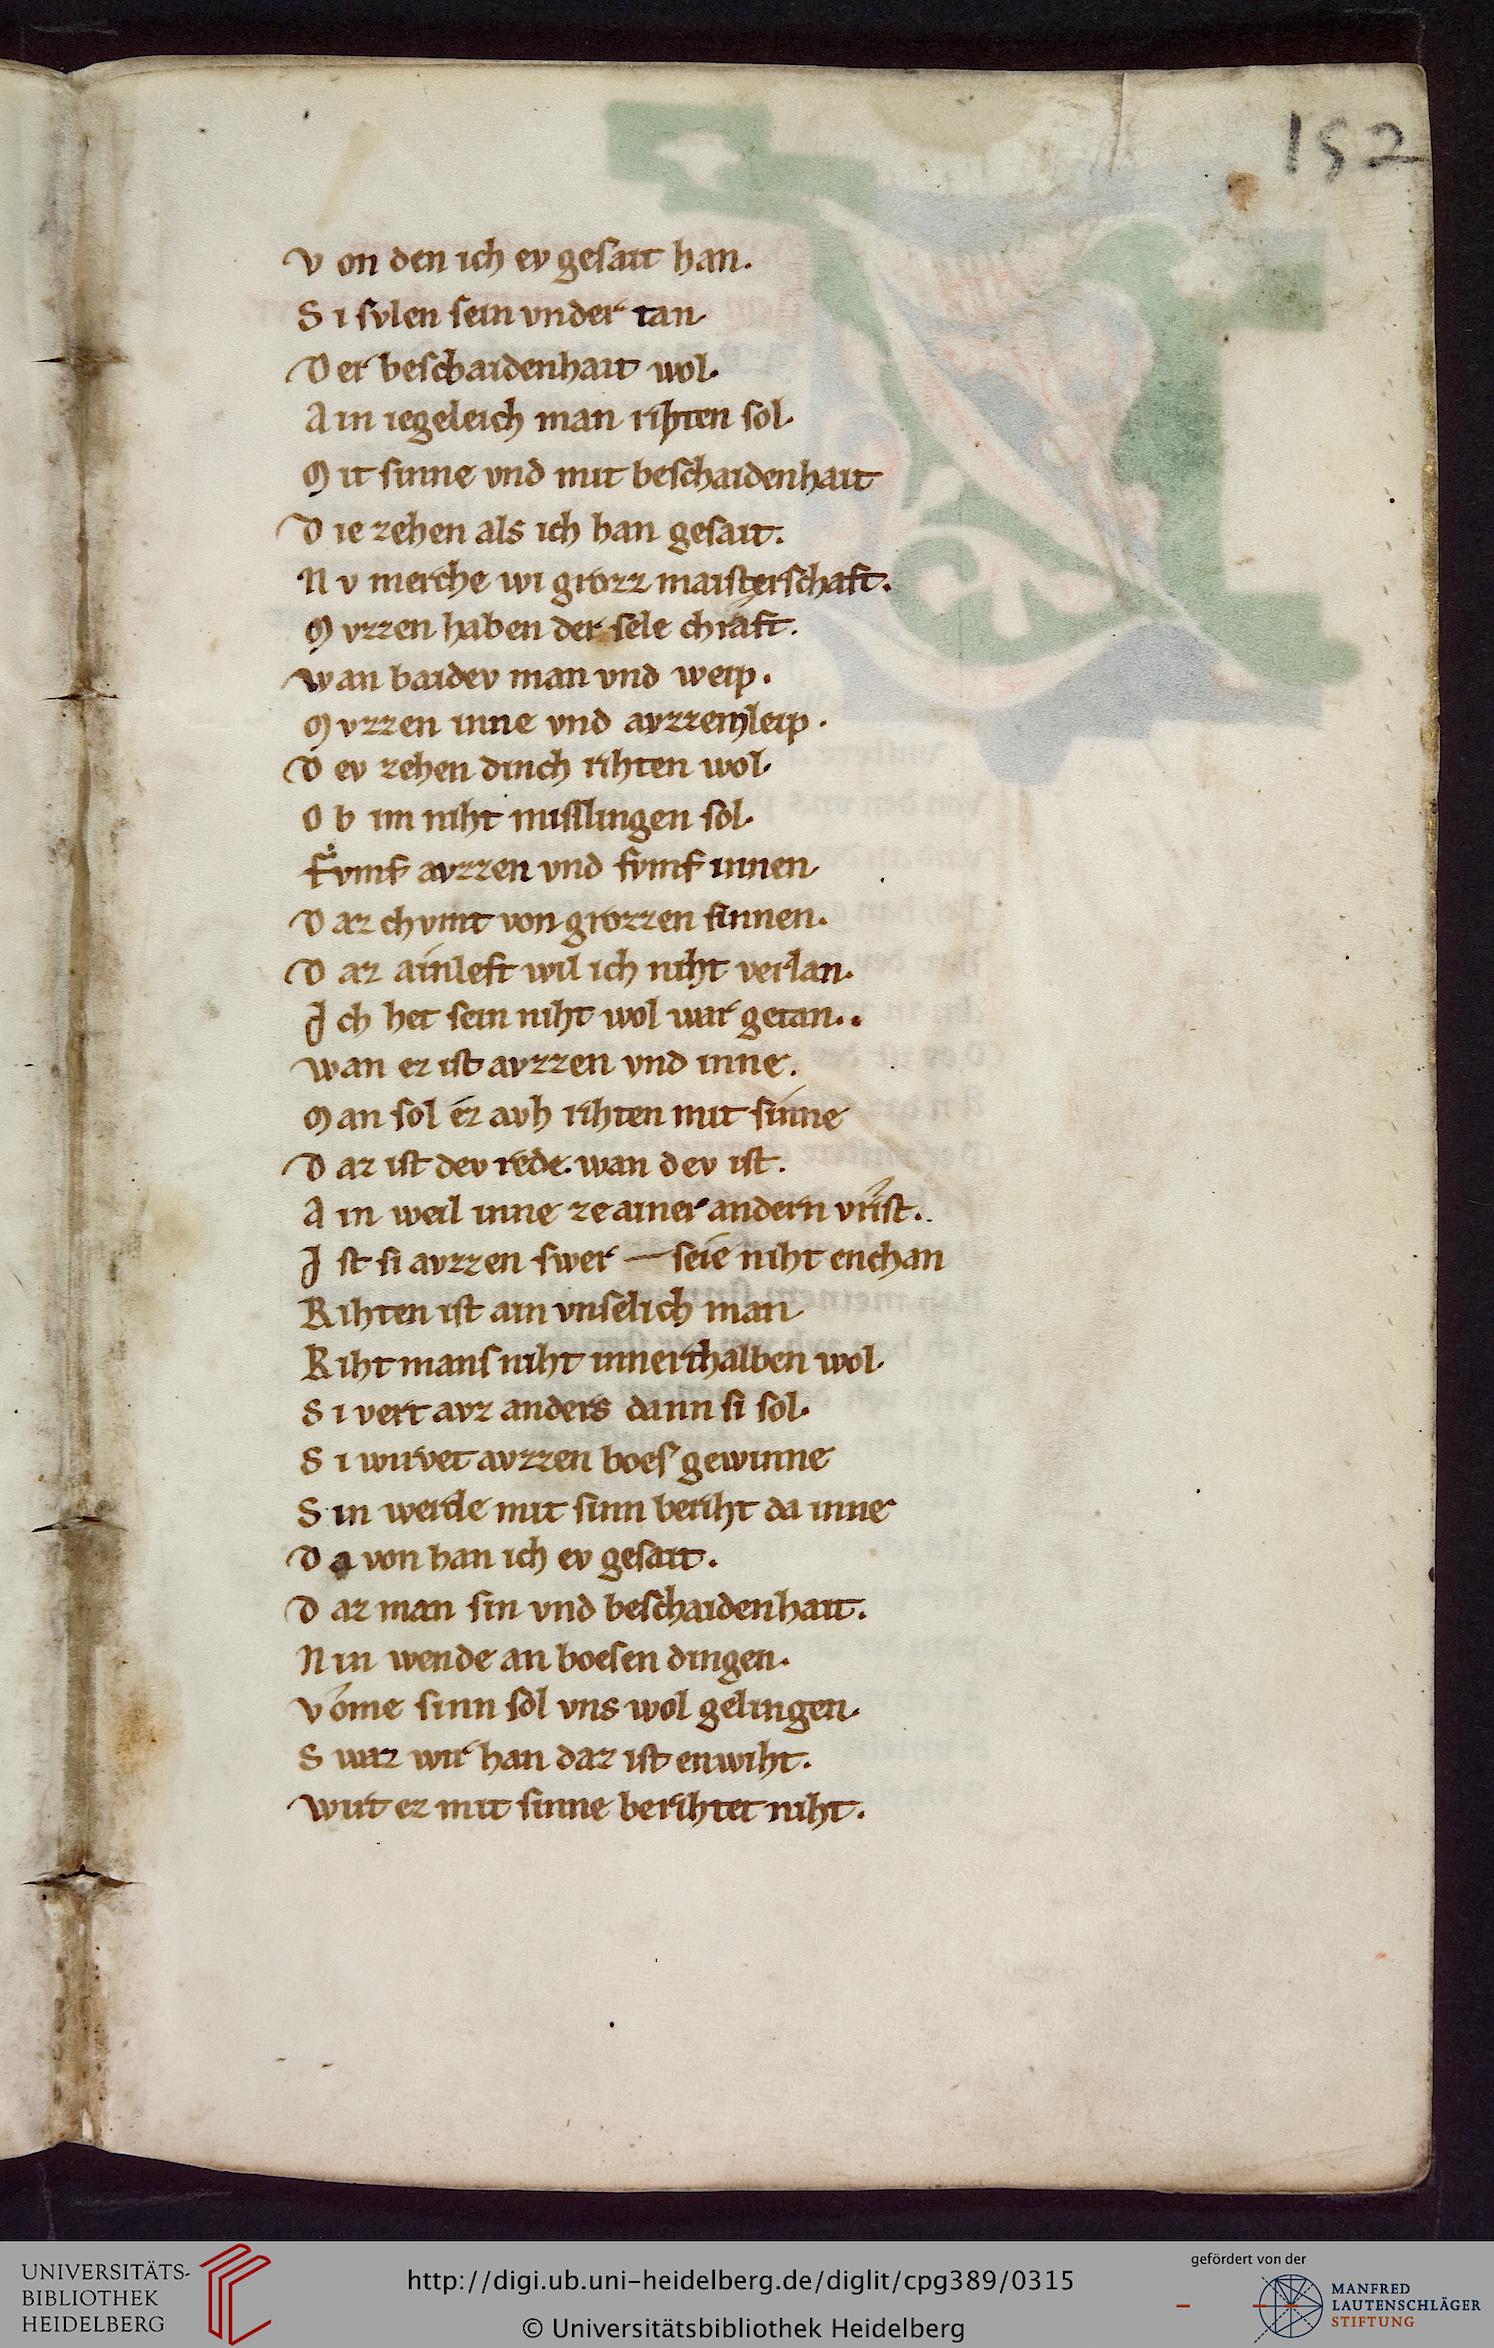 152
V on den ich ev gesait han.
S i svlen sein vnder tan
D er beschaidenhait wol.
A in iegeleich man rihten sol.
M it sinne vnd mit beschaidenhait
D ie zehen als ich han gesait.
N v merche wi grozz maisterschaft.
M vzzen haben der sele chraft.
W an baidev man vnd weip.
M vzzen inne vnd avzzemleip.
D ev zehen dinch rihten wol.
O b im niht misslingen sol.
F vmf avzzen vnd fvmf innen
D az chvmt von grozzen sinnen.
D az ainleft wil ich niht verlan.
I ch het sein niht wol war getan..
W an ez ist avzzen vnd inne.
M an sol ez avh rihten mit sinne
D az ist dev rede. wan dev ist.
A in weil inne ze ainer andern vrist..
I st si avzzen swer — seie niht enchan
R ihten ist ain vnselich man
R iht mans niht innerthalben wol.
S i vert avz anders dann si sol.
S i wirvet avzzen boes gewinne
S in werde mit sinn beriht da inne
D a von han ich ev gesait.
D az man sin vnd beschaidenhait.
N in wende an boesen dingen.
V ome sinn sol vns wol gelingen.
S waz wir han daz ist enwiht.
W irt ez mit sinne berihtet niht.
UNIVERSITÄTS-
BIBLIOTHEK
HEIDELBERG
http://digi.ub.uni-heidelberg.de/diglit/cpg389/0315
© Universitätsbibliothek Heidelberg
gefördert von der
MANFRED
LAUTENSCHLÄGER
STIFTUNG